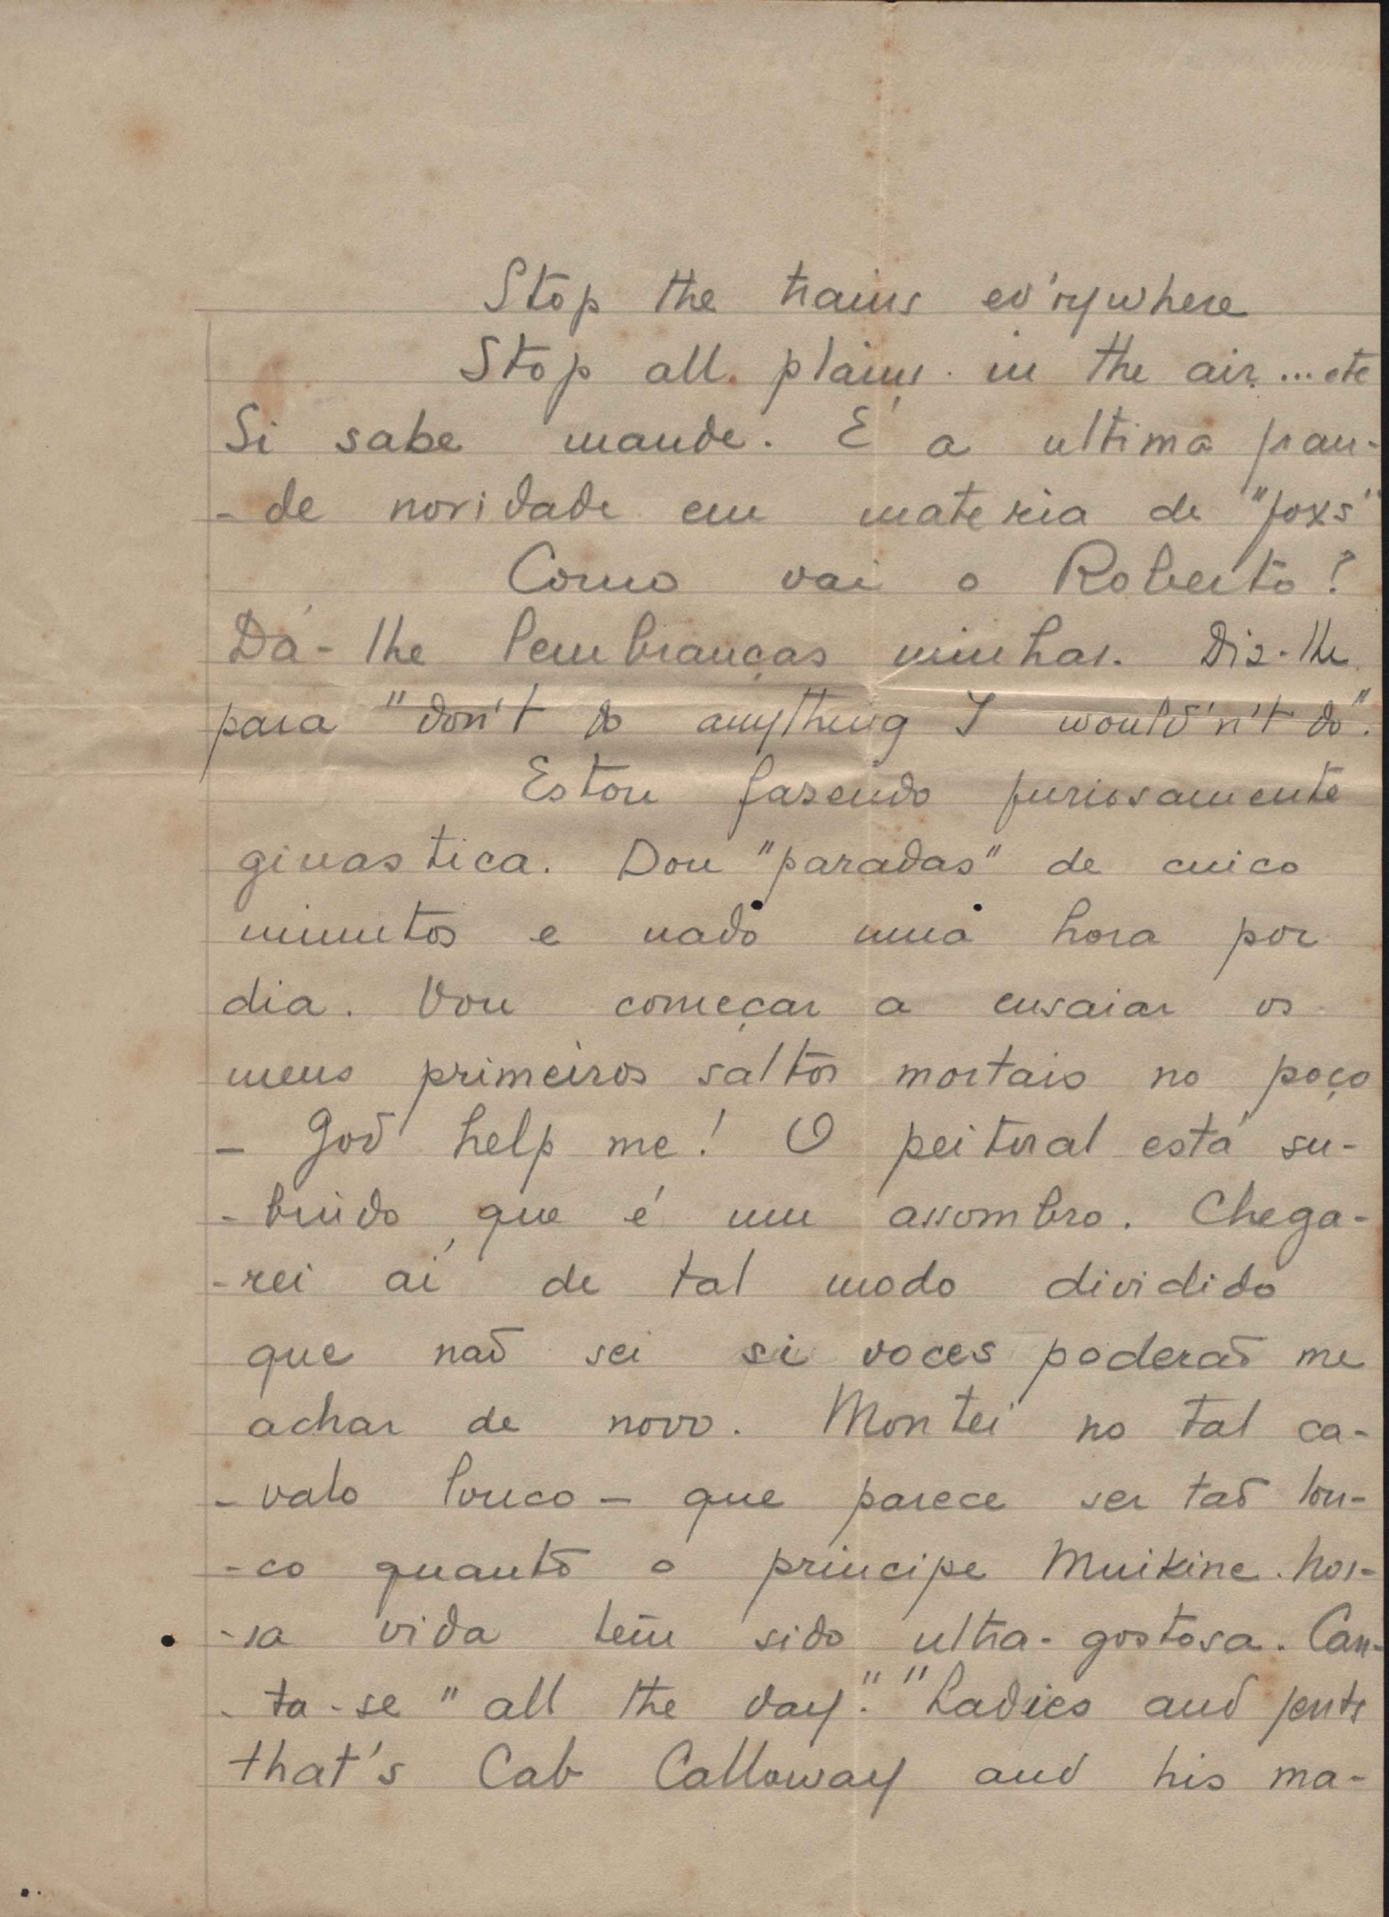 Stop the trains ev'rywhere
Stop all plains in the air ... etc
Si sabe mande. É a ultima gran-
-de novidade em materia de "foxs"
Como vai o Roberto?
Dá-lhe lembranças minhas. Diz-lhe
para "don't do anything I would'n't do".
Estou fazendo furiosamente
ginastica. Dou "paradas" de cinco
minutos e nado uma hora por
dia. Vou começar a ensaiar os
meus primeiros saltos mortais no poço
- God help me! O peitoral está su-
-bindo que é um assombro. Chega-
-rei aí de tal modo dividido
que naõ sei si voces poderaõ me
achar de novo. Montei no tal ca-
-valo louco - que parece ser taõ lou-
-co quanto o principe Muikine. Nos-
-sa vida tem sido ultra-gostosa. Can-
-ta-se "all the day". "Ladies and gents
that's Cab Calloway and his ma-